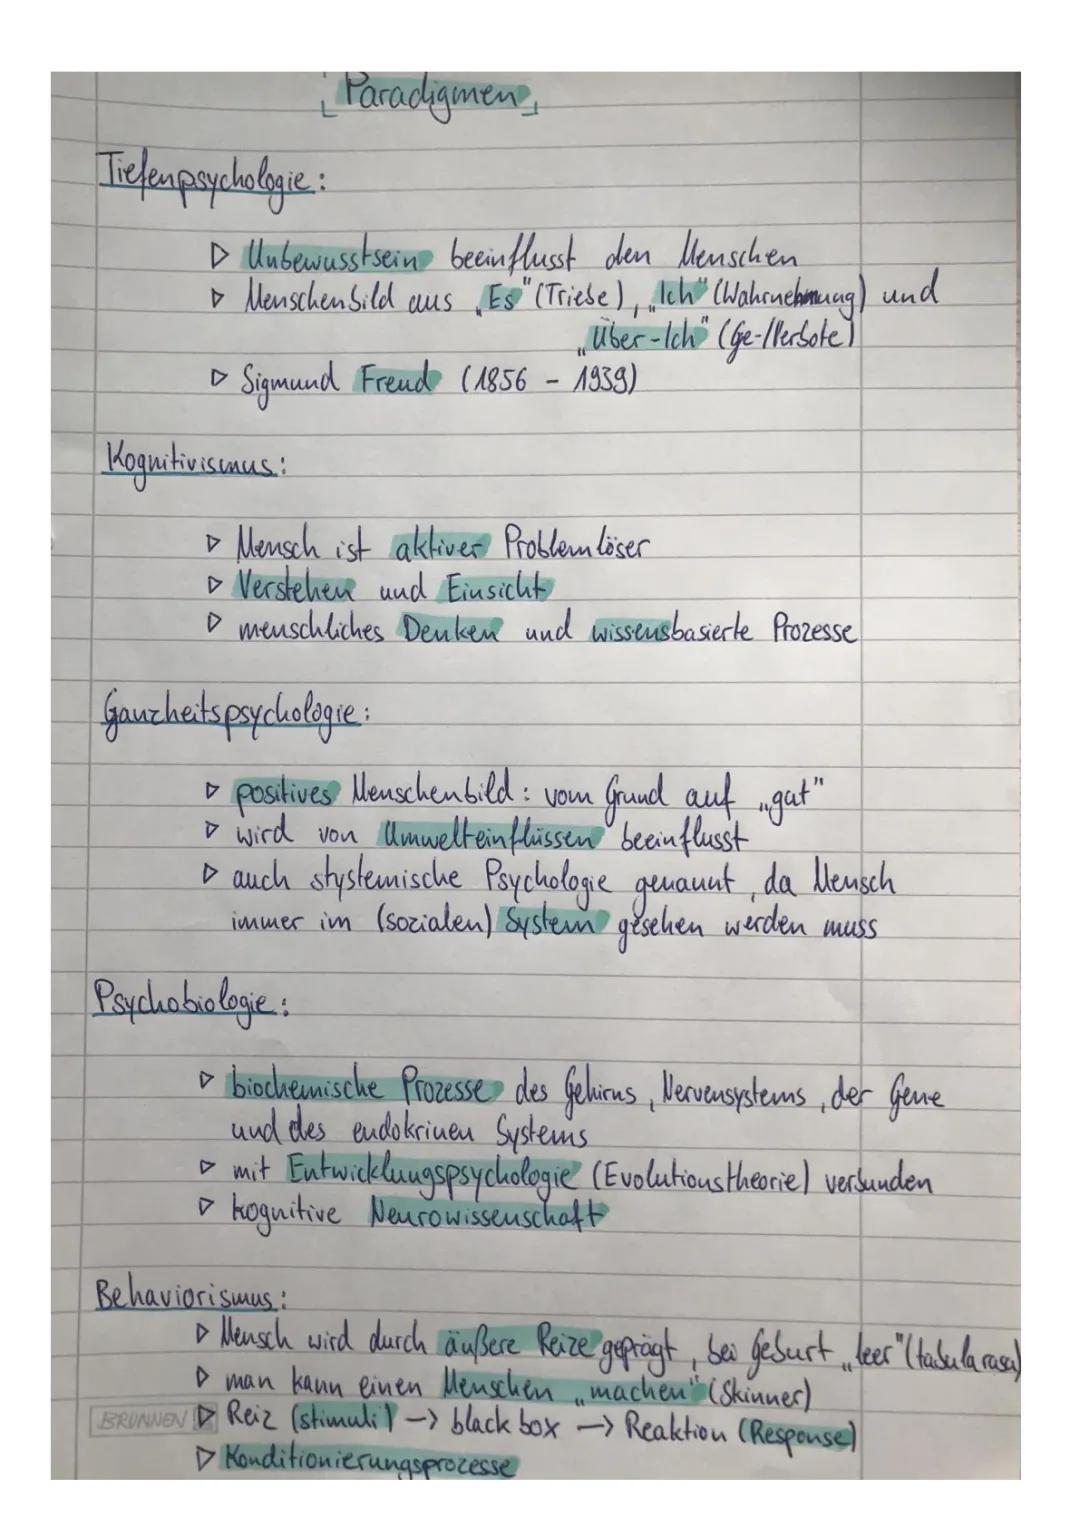 Paradigmen
Tiefenpsychologie:
▷ Unbewusstsein beeinflusst den Menschen
▷ Menschenbild aus „Es" (Triebe), „Ich" (Wahrnehmung) und
„Über-Ich" (Ge-/Verbote)
▷ Sigmund Freud (1856 - 1939)
Kognitivismus:
▷ Mensch ist aktiver Problemlöser
▷ Verstehen und Einsicht
▷ menschliches Denken und wissensbasierte Prozesse
Ganzheitspsychologie:
▷ positives Menschenbild: vom Grund auf „gut"
▷ wird von Umwelteinflüssen beeinflusst
▷ auch stystemische Psychologie genannt, da Mensch
immer im (sozialen) System gesehen werden muss
Psychobiologie:
▷ biochemische Prozesse des Gehirns, Nervensystems, der Gene
und des endokrinen Systems
▷ mit Entwicklungspsychologie (Evolutionstheorie) verbunden
▷ kognitive Neurowissenschaft
Behaviorismus:
▷ Mensch wird durch äußere Reize geprägt, bei Geburt „leer" (tabula rasa)
▷ man kann einen Menschen „machen" (Skinner)
BRUNNEN ▷ Reiz (stimuli) -> black box -> Reaktion (Response)
▷ Konditionierungsprozesse